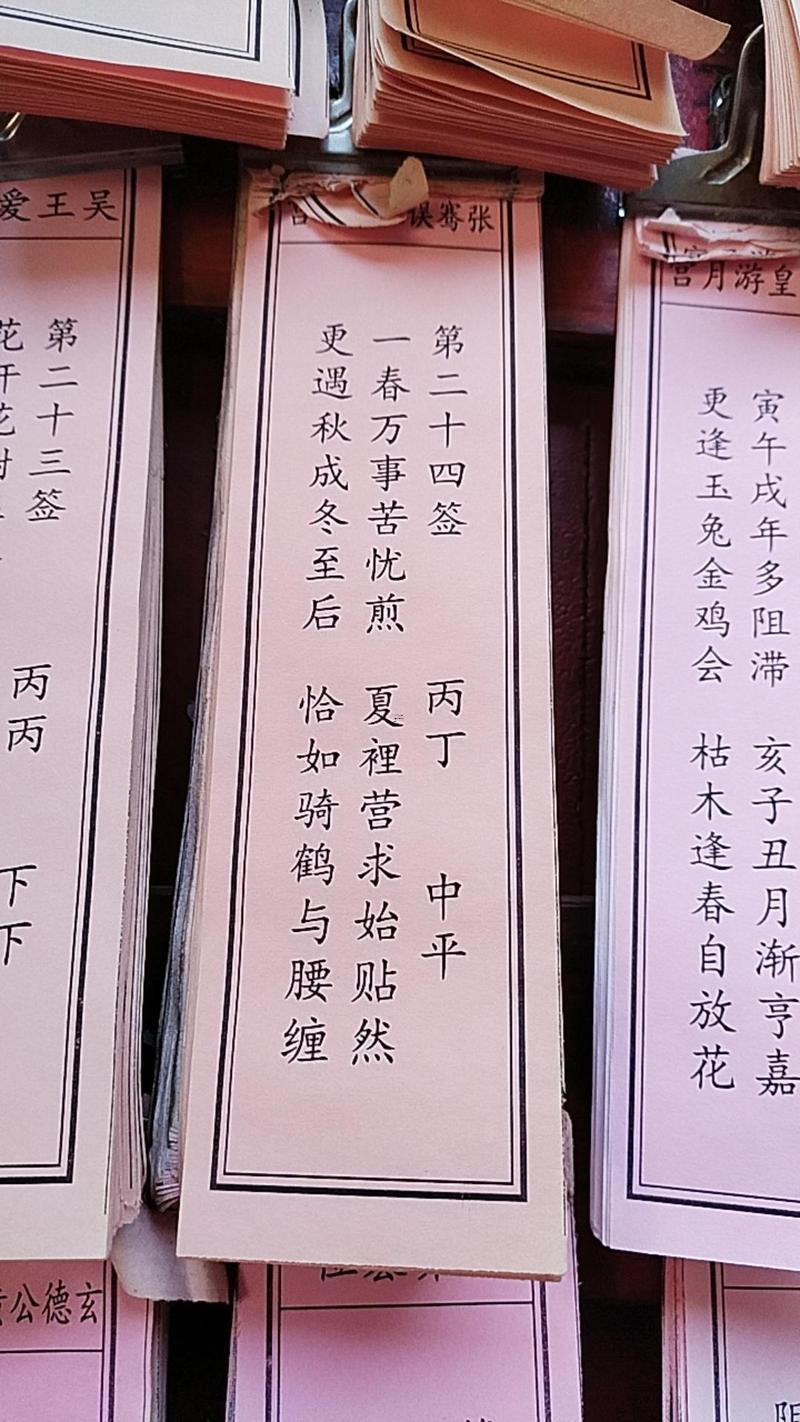 张骞误
第二十四签 丙丁 中平
一春万事苦忧煎 夏裡营求始贴然
更遇秋成冬至后 恰如骑鹤与腰缠
皇游月宫
寅午戌年多阻滞 亥子丑月渐亨嘉
更逢玉兔金鸡会 枯木逢春自放花
吴王爱
第二十三签 丙丙 下下
花开花
玄德公